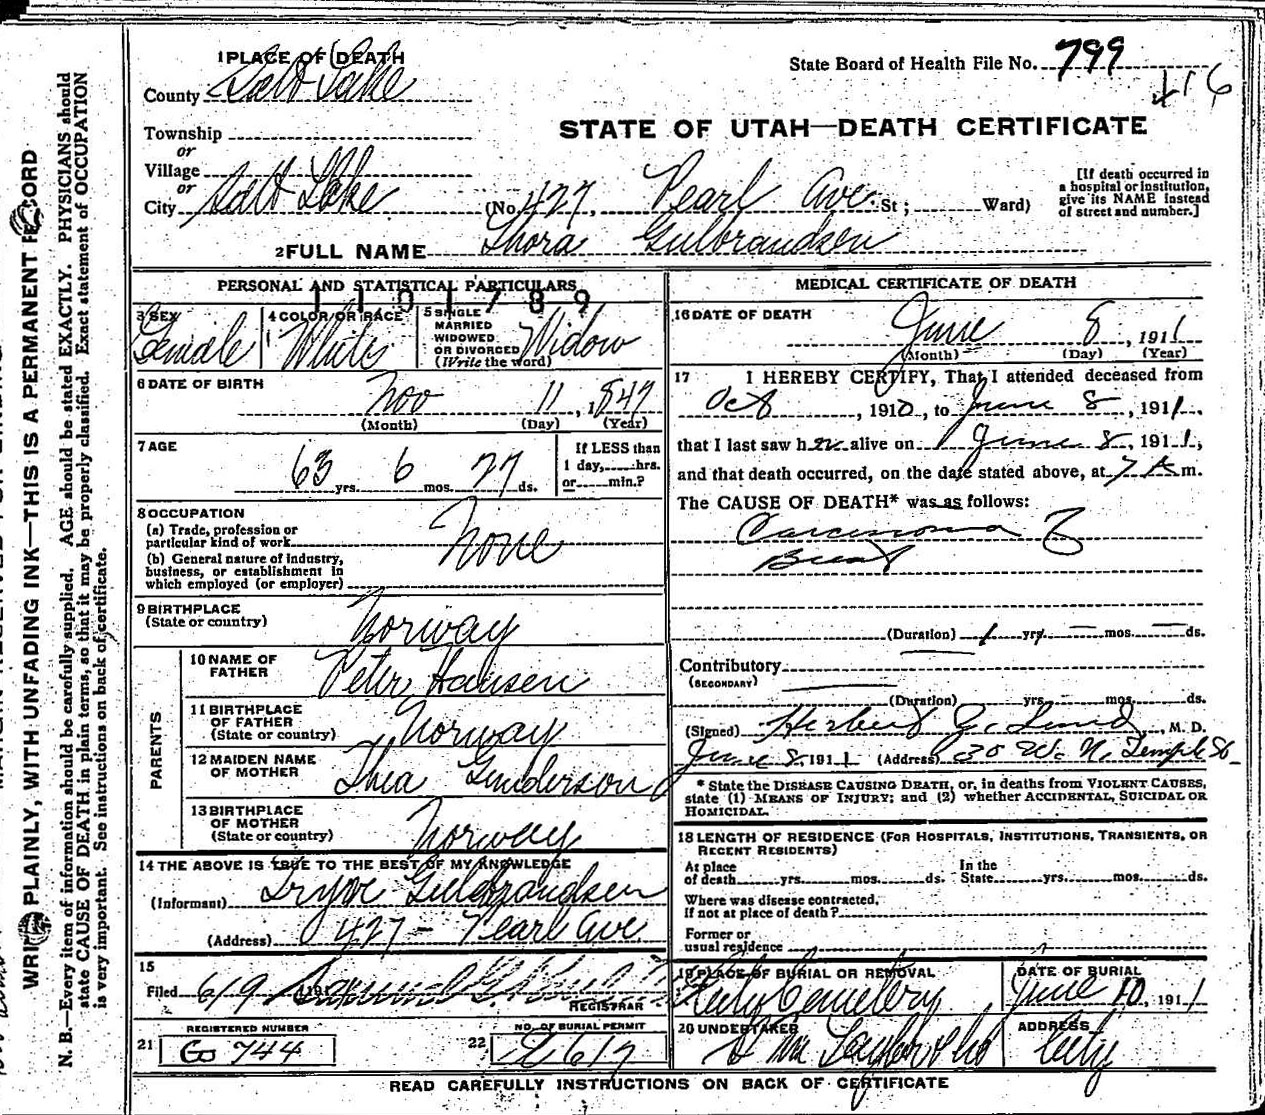 1 PLACE OF DEATH
County Salt Lake
State Board of Health File No. 799
116
STATE OF UTAH—DEATH CERTIFICATE
Township
or
Village
or
City Salt Lake (No. 427, Pearl Ave. St; Ward)
[If death occurred in a hospital or institution, give its NAME instead of street and number.]
2 FULL NAME Thora Gulbrandsen
PERSONAL AND STATISTICAL PARTICULARS
1101789
3 SEX Female
4 COLOR OR RACE White
5 SINGLE MARRIED WIDOWED OR DIVORCED (Write the word) Widow
6 DATE OF BIRTH Nov 11, 1847
(Month) (Day) (Year)
7 AGE 63 yrs. 6 mos. 27 ds.
If LESS than 1 day, hrs. or min.?
8 OCCUPATION
(a) Trade, profession or particular kind of work None
(b) General nature of industry, business, or establishment in which employed (or employer)
9 BIRTHPLACE (State or country) Norway
PARENTS
10 NAME OF FATHER Peter Hansen
11 BIRTHPLACE OF FATHER (State or country) Norway
12 MAIDEN NAME OF MOTHER Thea Gunderson
13 BIRTHPLACE OF MOTHER (State or country) Norway
14 THE ABOVE IS TRUE TO THE BEST OF MY KNOWLEDGE
(Informant) Trygve Gulbrandsen
(Address) 427 - Pearl Ave
15
Filed 6/9 191
REGISTRAR
REGISTERED NUMBER
21 Go 744
NO. OF BURIAL PERMIT
22 2617
MEDICAL CERTIFICATE OF DEATH
16 DATE OF DEATH June 8, 1911
(Month) (Day) (Year)
17 I HEREBY CERTIFY, That I attended deceased from
Oct, 1910, to June 8, 1911,
that I last saw her alive on June 8, 1911,
and that death occurred, on the date stated above, at 7 A m.
The CAUSE OF DEATH* was as follows:
Carcinoma of
Breast
(Duration) 1 yrs. — mos. — ds.
Contributory
(SECONDARY)
(Duration) yrs. mos. ds.
(Signed) Herbert J. Lund, M. D.
June 8, 1911 (Address) 30 W. N. Temple St
* State the DISEASE CAUSING DEATH, or, in deaths from VIOLENT CAUSES, state (1) MEANS OF INJURY; and (2) whether ACCIDENTAL, SUICIDAL OR HOMICIDAL.
18 LENGTH OF RESIDENCE (FOR HOSPITALS, INSTITUTIONS, TRANSIENTS, OR RECENT RESIDENTS)
At place of death yrs. mos. ds. In the State yrs. mos. ds.
Where was disease contracted, If not at place of death?
Former or usual residence
19 PLACE OF BURIAL OR REMOVAL City Cemetery
DATE OF BURIAL June 10, 1911
20 UNDERTAKER
ADDRESS City
READ CAREFULLY INSTRUCTIONS ON BACK OF CERTIFICATE
WRITE PLAINLY, WITH UNFADING INK—THIS IS A PERMANENT RECORD
N. B.—Every item of information should be carefully supplied. AGE should be stated EXACTLY. PHYSICIANS should
state CAUSE OF DEATH in plain terms, so that it may be properly classified. Exact statement of OCCUPATION
is very important. See instructions on back of certificate.